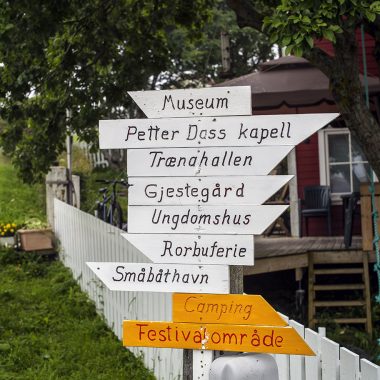 Museum
Petter Dass kapell
Trænahallen
Gjestegård
Ungdomshus
Rorbuferie
Småbåthavn
Camping
Festivalområde